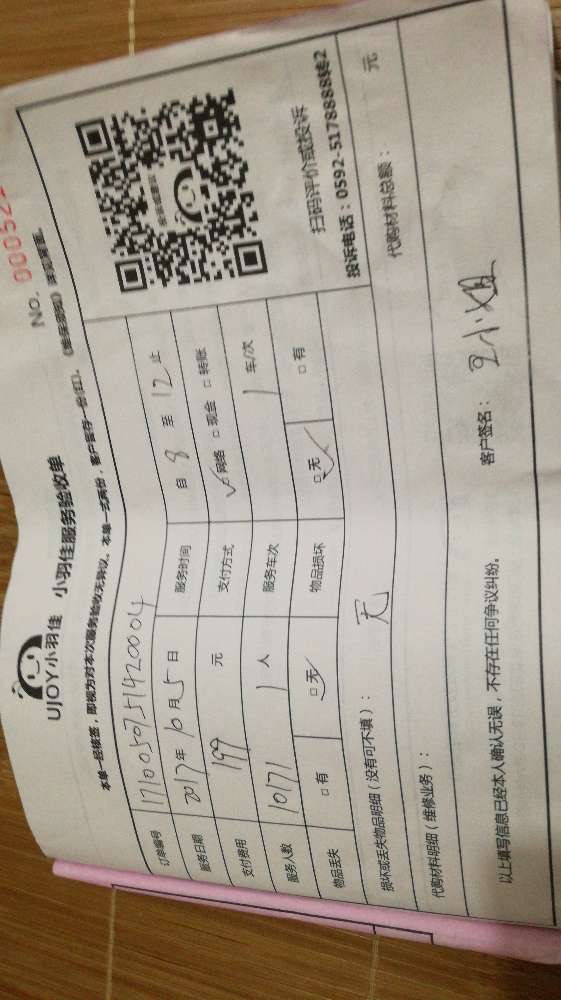 UJOY小羽佳 小羽佳服务验收单
No. 00052
本单一经核签，即视为对本次服务验收无异议。本单一式两份，客户留存一份
订单编号 1710050751420004
服务日期 2017年10月5日 服务时间 自 8 至 12 止
支付费用 199 元 支付方式 ☑网络 □现金 □转账
服务人数 10171 1 人 服务车次 1 车/次
物品丢失 □有 ☑无 物品损坏 ☑无 □有
扫码评价或投诉
投诉电话：0592-5178888转2
损坏或丢失物品明细（没有可不填）： 无
代购材料明细（维修业务）： 代购材料总额： 元
以上填写信息已经本人确认无误，不存在任何争议纠纷。 客户签名： 小姐